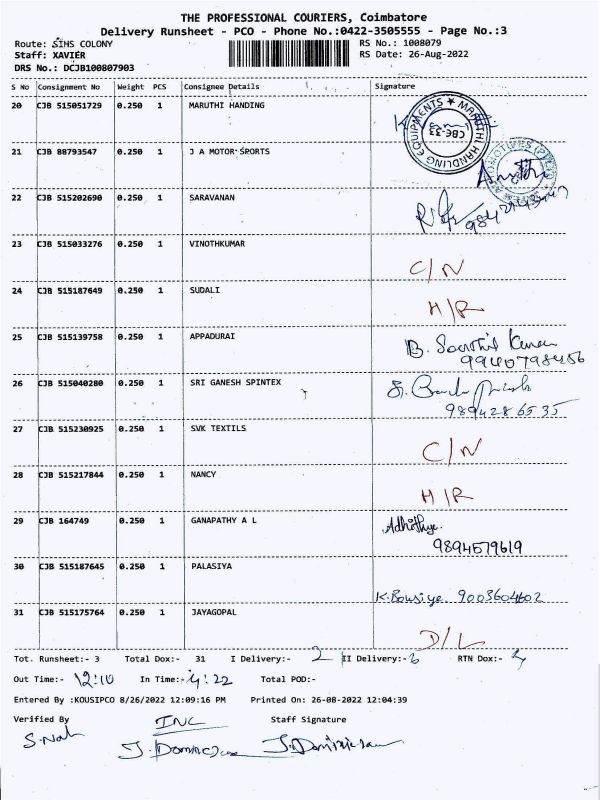 THE PROFESSIONAL COURIERS, Coimbatore
Delivery Runsheet - PCO - Phone No.:0422-3505555 - Page No.:3
Route: SIHS COLONY RS No.: 1008079
Staff: XAVIER RS Date: 26-Aug-2022
DRS No.: DCJB100807903
S No Consignment No Weight PCS Consignee Details Signature
20 CJB 515051729 0.250 1 MARUTHI HANDING
MARUTHI HANDLING EQUIPMENTS CBE-33
21 CJB 88793547 0.250 1 J A MOTOR SPORTS
22 CJB 515202690 0.250 1 SARAVANAN
23 CJB 515033276 0.250 1 VINOTHKUMAR C/N
24 CJB 515187649 0.250 1 SUDALI H/R
25 CJB 515139758 0.250 1 APPADURAI B.
9940798456
26 CJB 515040280 0.250 1 SRI GANESH SPINTEX
9894286535
27 CJB 515230925 0.250 1 SVK TEXTILS C/N
28 CJB 515217844 0.250 1 NANCY H/R
29 CJB 164749 0.250 1 GANAPATHY A L
9894579619
30 CJB 515187645 0.250 1 PALASIYA K. 9003604602
31 CJB 515175764 0.250 1 JAYAGOPAL D/L
Tot. Runsheet:- 3 Total Dox:- 31 I Delivery:- II Delivery:- RTN Dox:-
Out Time:- 12:10 In Time:- 4:22 Total POD:-
Entered By :KOUSIPCO 8/26/2022 12:09:16 PM Printed On: 26-08-2022 12:04:39
Verified By INC Staff Signature